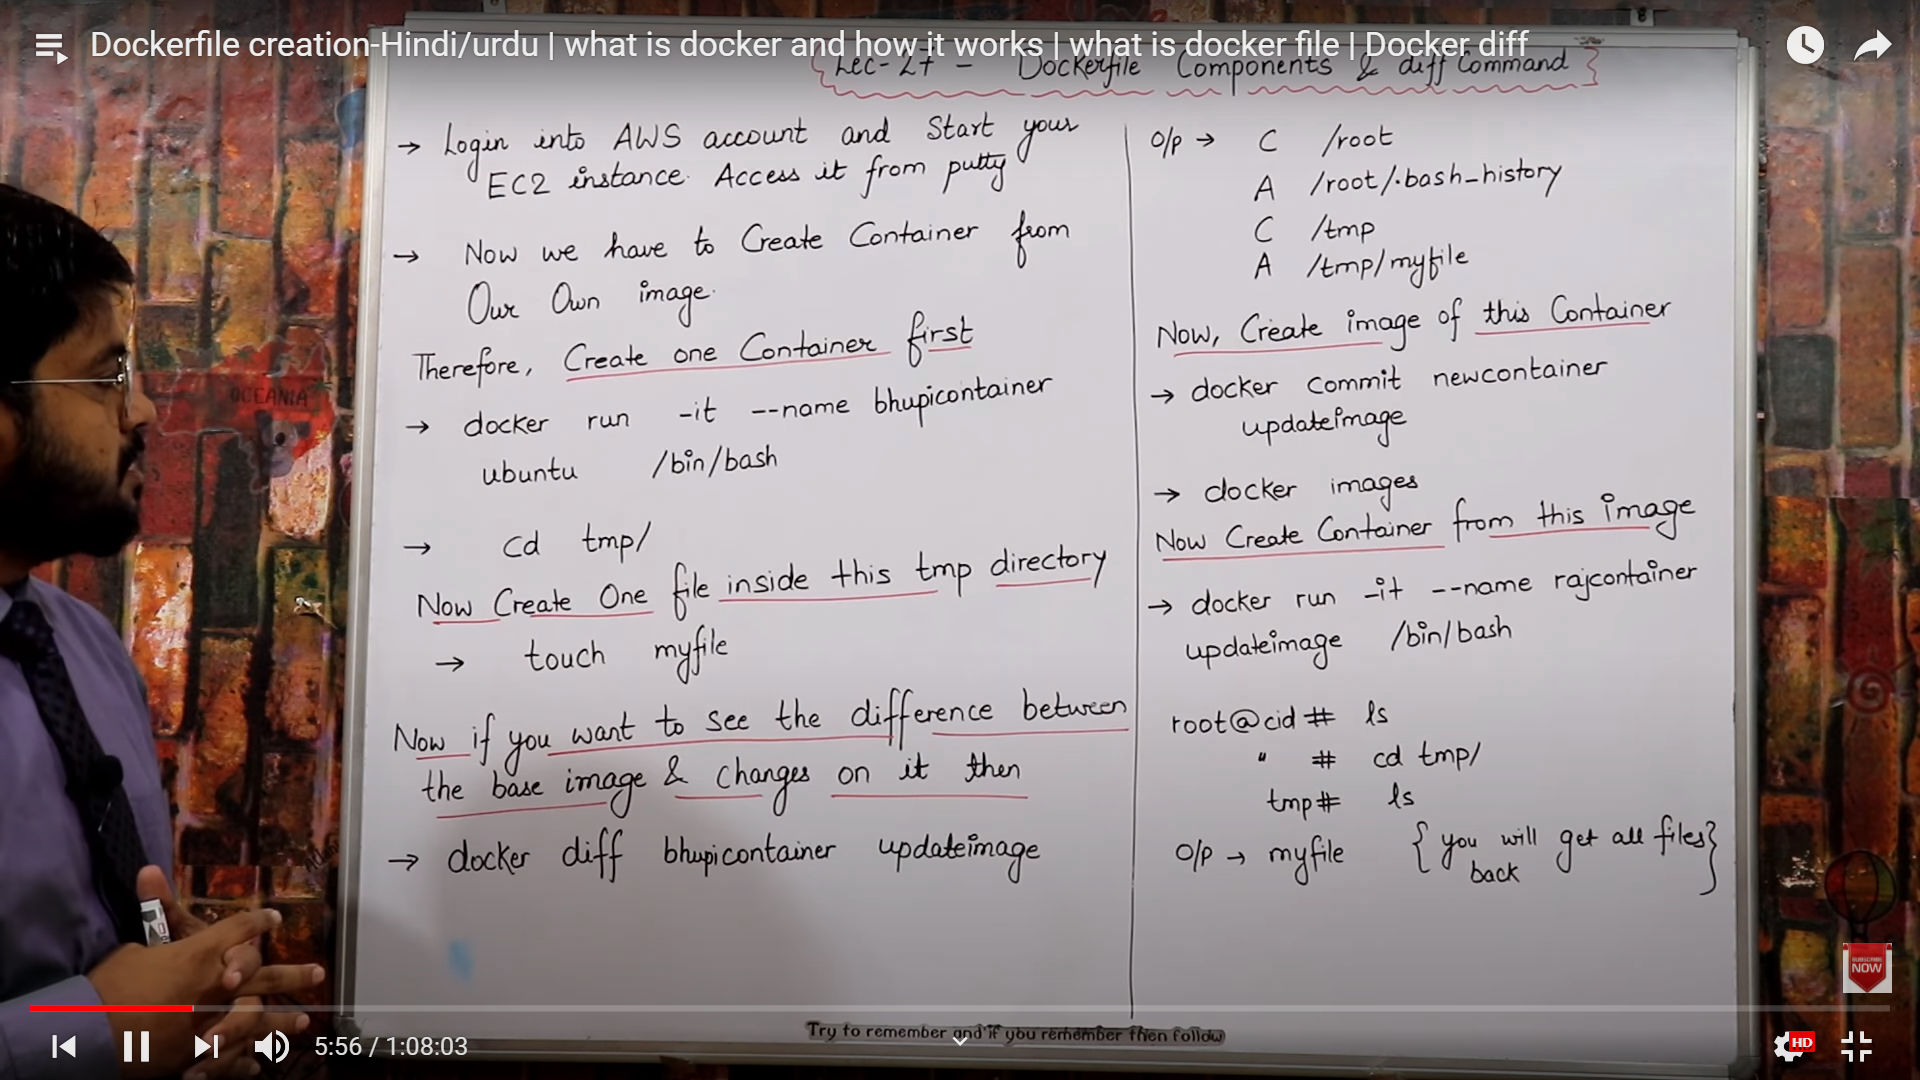 Dockerfile creation-Hindi/urdu | what is docker and how it works | what is docker file | Docker diff
Lec-27 - Dockerfile Components & diff Command
→ Login into AWS account and Start your
EC2 instance. Access it from putty
→ Now we have to Create Container from
Our Own image.
Therefore, Create one Container first
→ docker run -it --name bhupicontainer
ubuntu /bin/bash
→ cd tmp/
Now Create One file inside this tmp directory
→ touch myfile
Now if you want to see the difference between
the base image & changes on it then
→ docker diff bhupicontainer updateimage
O/p → C /root
A /root/.bash_history
C /tmp
A /tmp/myfile
Now, Create image of this Container
→ docker commit newcontainer
updateimage
→ docker images
Now Create Container from this image
→ docker run -it --name rajcontainer
updateimage /bin/bash
root@cid # ls
" # cd tmp/
tmp# ls
O/p → myfile {you will get all files}
back
OCEANIA
SUBSCRIBE
NOW
Try to remember and if you remember then follow
5:56 / 1:08:03
HD